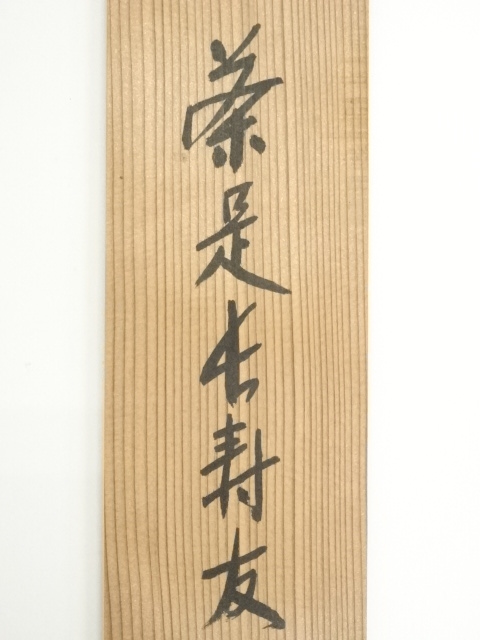 茶是长寿友